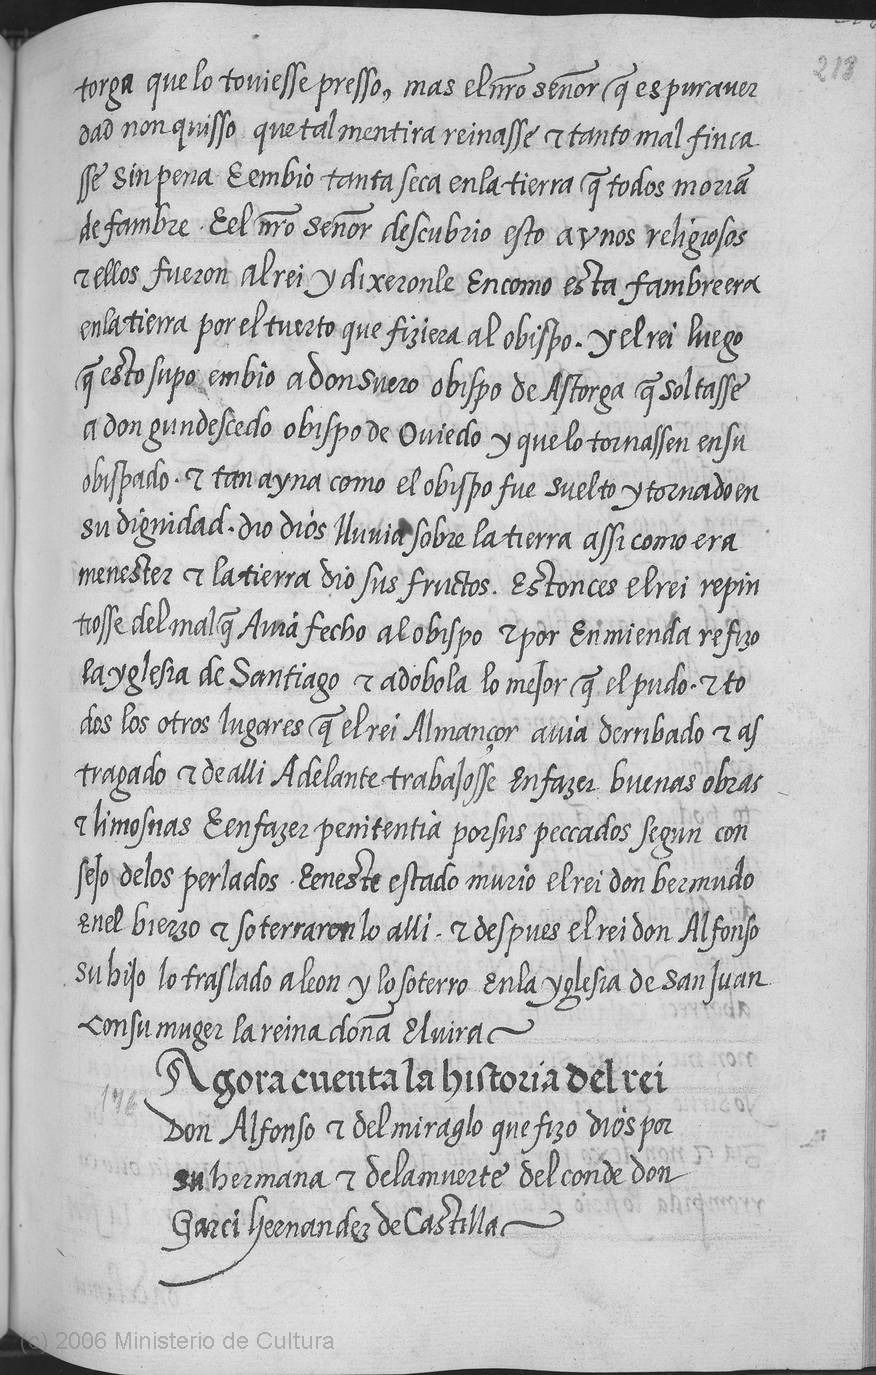 213
torga que lo toviesse presso, mas el nr̃o señor q̃ es pura ver
dad non quisso que tal mentira reinasse τ tanto mal finca
sse sin pena E embio tanta seca en la tierra q̃ todos moriã
de fambre · E el nr̃o señor descubrio esto a vnos religiosos
τ ellos fueron al rei y dixeronle En como esta fambre era
en la tierra por el tuerto que fiziera al obispo. y el rei luego
q̃ esto supo embio a don Suero obispo de Astorga q̃ soltasse
a don gundescedo obispo de Oviedo y que lo tornassen en su
obispado · τ tan ayna como el obispo fue suelto y tornado en
su dignidad · dio dios lluvia sobre la tierra assi como era
menester τ la tierra dio sus fructos. Estonces el rei repin
tiosse del mal q̃ Avia fecho al obispo τ por Enmienda refizo
la yglesia de Santiago τ adobola lo mejor q̃ el pudo · τ to
dos los otros lugares q̃ el rei Almançor avia derribado τ as
tragado τ de alli Adelante trabajosse En fazer buenas obras
τ limosnas E en fazer penitentia por sus peccados segun con
sejo de los perlados · E en este estado murio el rei don bermudo
En el bierzo τ soterraronlo alli · τ despues el rei don Alfonso
su hijo lo traslado a leon y lo soterro En la yglesia de San Juan
con su muger la reina doña Elvira
Agora cuenta la historia del rei
Don Alfonso τ del miraglo que fizo dios por
su hermana τ de la muerte del conde don
Garci hernandez de Castilla
(c) 2006 Ministerio de Cultura